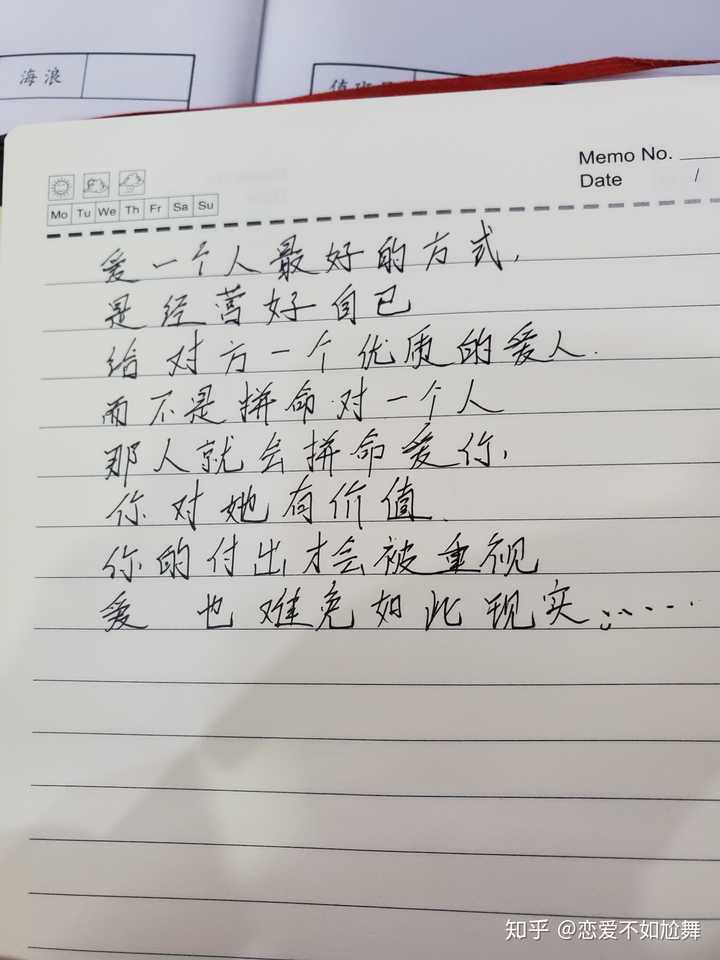 海浪
值班
Memo No.
Date /
Mo Tu We Th Fr Sa Su
爱一个人最好的方式,
是经营好自己
给对方一个优质的爱人.
而不是拼命对一个人
那人就会拼命爱你,
你对她有价值.
你的付出才会被重视
爱 也难免如此现实:……
知乎 @恋爱不如尬舞